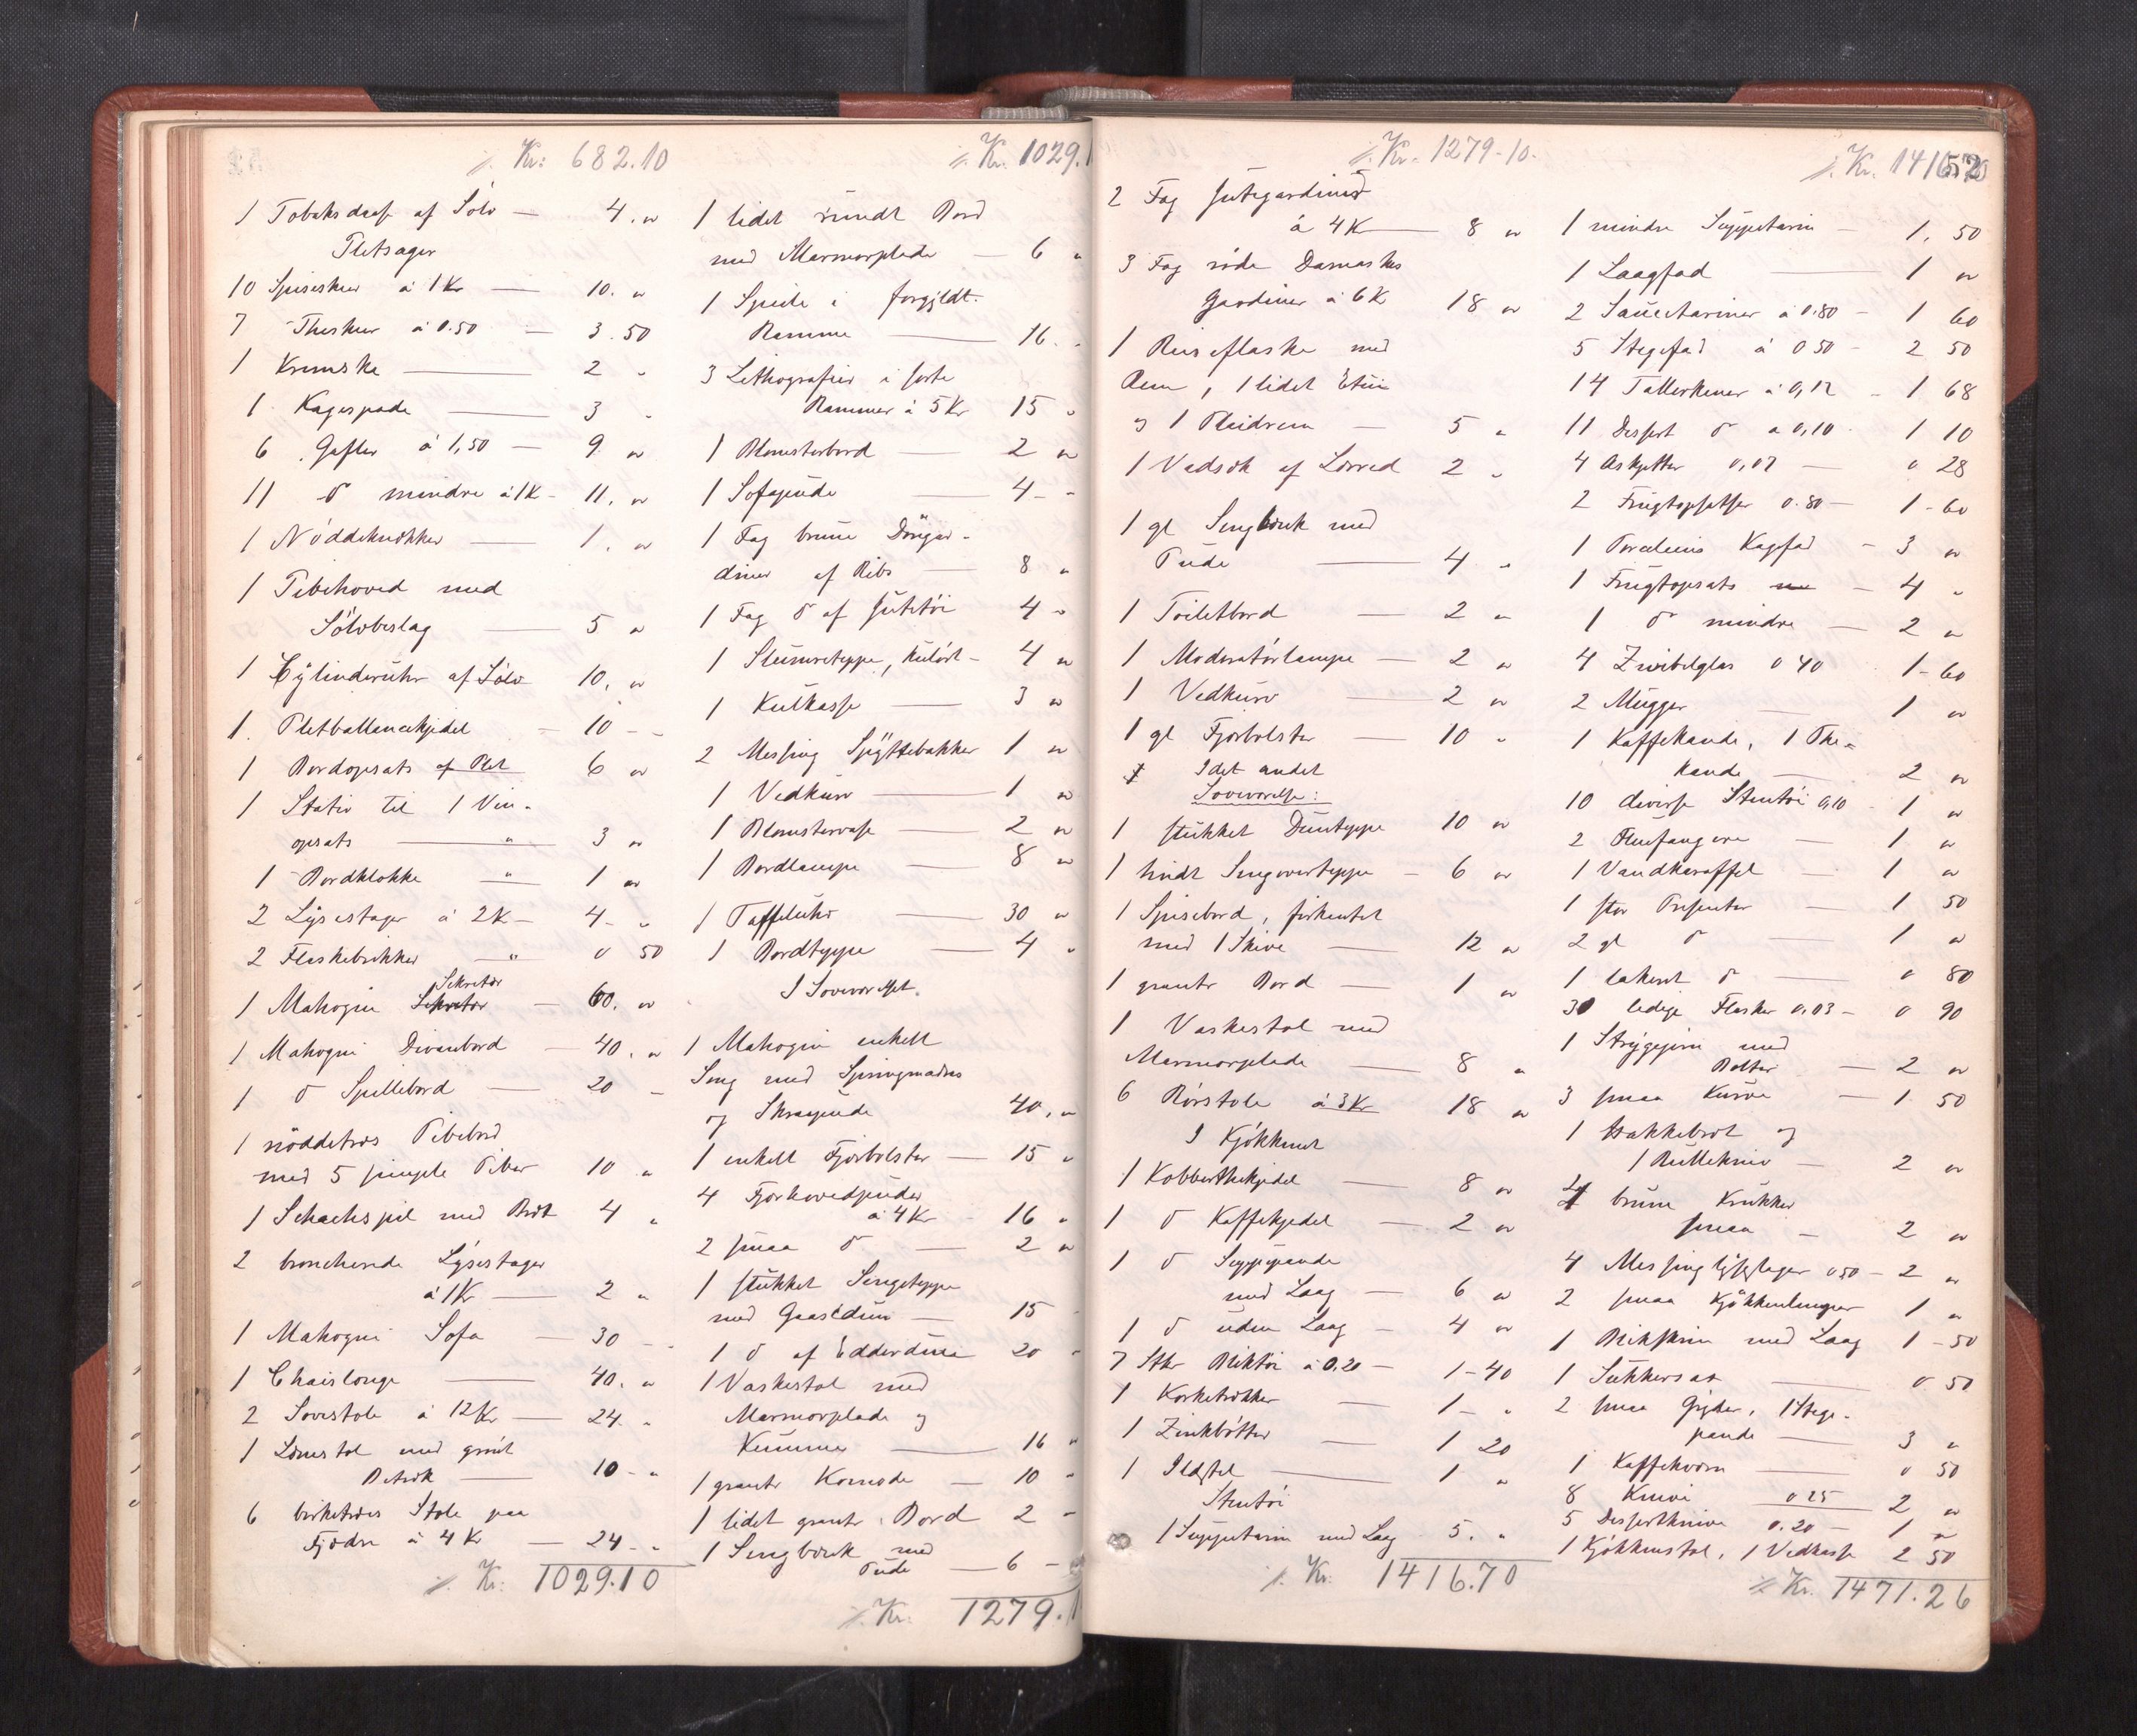 Kr: 682.10
1 Tobaksdaase af Sölv — 4. "
Pletsager
10 Spiseskeer à 1 Kr — 10. "
7 Theskeer à 0.50 — 3.50
1 Kremske — 2 "
1 Kagespade — 3 "
6 Gafler à 1,50 — 9 "
11 do mindre à 1 K — 11. "
1 Nöddeknækker — 1. "
1 Pibehoved med
Sölvbeslag — 5 "
1 Cylinderuhr af Sölv 10. "
1 Pletballancekjedel — 10 - -
1 Bordopsats af Plet 6 "
1 Stativ til 1 Vin-
opsats — " — 3 "
1 Bordklokke — " 1 "
2 Lysestager à 2 K — 4 - "
2 Flaskebrikker — " 0 50
Sekretær
1 Mahogni — 60. "
1 Mahogni Divanbord — 40. "
1 do Spillebord — 20 -
1 nöddetræs Pibebord
med 5 simple Piber 10 "
1 Schachspil med Bræt 4 "
2 broncherede Lysestager
à 1 Kr — 2 "
1 Mahogni Sofa — 30 - -
1 Chaislonge — 40. "
2 Lovestole à 12 Kr — 24. "
1 Lænestol med grönt
Betræk — 10 - "
6 birketræs Stole paa
Fjædre à 4 Kr — 24 - "
Kr: 1029.10
Kr. 1029.1
1 lidet rundt Bord
med Marmorplade — 6 "
1 Speile i forgyldt
Ramme — 16. "
3 Lithografier i sorte
Rammer à 5 Kr 15 "
1 Blomsterbord — 2 "
1 Sofapude — 4 - "
1 Fag brune Dörgar-
diner af Ribs — 8 "
1 Fag do af Jutetöi 4 "
1 Slumreteppe, kulört — 4 "
1 Kulkasse — 3 "
2 Messing Spyttebakker 1 "
1 Vedkurv — 1 "
1 Blomstervase — 2 "
1 Bordlampe — 8 "
1 Taffeluhr — 30 "
1 Bordteppe — 4 "
I Soveværelset.
1 Mahogni enkelt
Seng med Springmadras
og Skraapude 40. "
1 enkelt Fjærbolster — 15 "
4 Fjærhovedpuder
à 4 Kr 16 "
2 smaa do — 2 "
1 stukket Sengeteppe
med Gaasedun — 15 -
1 do af Edderduun 20 -
1 Vaskestol med
Marmorplade og
Kummer — 16 "
1 grante Komode — 10 "
1 lidet grante Bord 2 -
1 Sengbænk med
Pude — 6 -
Kr: 1279.1
Kr. 1279-10.
2 Fag Jutegardiner
à 4 K — 8 "
3 Fag röde Damaskes
Gardiner à 6 K 18 "
1 Reiseflaske med
Rem, 1 lidet Etui
og 1 Pleidrem — 5 "
1 Vadsæk af Lærred 2 "
1 gl Sengbænk med
Pude — 4 "
1 Toiletbord — 2 "
1 Moderatörlampe — 2 "
1 Vedkurv — 2 "
1 gl Fjærbolster — 10 "
I det andet
Soveværelse:
1 stukket Duunteppe 10 "
1 hvidt Sengoverteppe — 6 "
1 Spisebord, firkantet
med 1 Skive — 12 "
1 grante Bord — 1 "
1 Vaskestol med
Marmorplade — 8 "
6 Rörstole à 3 Kr 18 "
I Kjökkenet
1 Kobberthekjedel — 8 "
1 do Kaffekjedel — 2 "
1 do Suppepande
med Laag — 6 "
1 do uden Laag — 4 "
7 Stkr Bliktöi à 0.20 — 1-40
1 Korketrækker — 1 - "
1 Zinkbötter — 1 20
1 Ildstel — 1 "
Stentöi
1 Suppeterrin med Laag 5. "
Kr. 1416.70
Kr. 1416.70
1 mindre Suppeterrin — 1. 50
1 Laagfad — 1 "
2 Sauceterriner à 0.80 — 1 60
5 Stegefad à 0 50 — 2 50
14 Tallerkener à 0,12 — 1 68
11 Dessert do à 0,10 1 10
4 Askjetter 0,07 — 0 28
2 Frugtopsatser 0.80 — 1-60
1 Porcelains Kagfad — 3 "
1 Frugtopsats — 4 "
1 do mindre — 2 "
4 Zwibelglas 0 40 1-60
2 Mugger — 1 "
1 Kaffekande, 1 The-
kande — 2 "
10 diverse Stentöi 0,10 — 1 "
2 Fluefangere — 1 "
1 Vandkaraffel — 1 "
1 stor Presenter — 1 50
2 gl do — 1 "
1 lakeret do — 0 80
30 ledige Flasker 0.03 — 0 90
1 Strygejern med
Bolter — 2 "
3 smaa Kurve — 1 50
1 Hakkebræt og
1 Rullekniv — 2 "
4 brune Krukker
smaa — 2 "
4 Messing Lysestager 0,50 — 2 "
2 smaa Kjökkenlamper 1 "
1 Blikskrin med Laag 1-50
1 Sukkersax — 0 50
2 smaa Gryder, 1 Stege-
pande — 3 "
1 Kaffekværn — 0 50
8 Knive 0 25 2 "
5 Dessertknive 0.20 — 1 "
1 Kjökkenstol, 1 Vedkasse 2 50
Kr. 1471.26